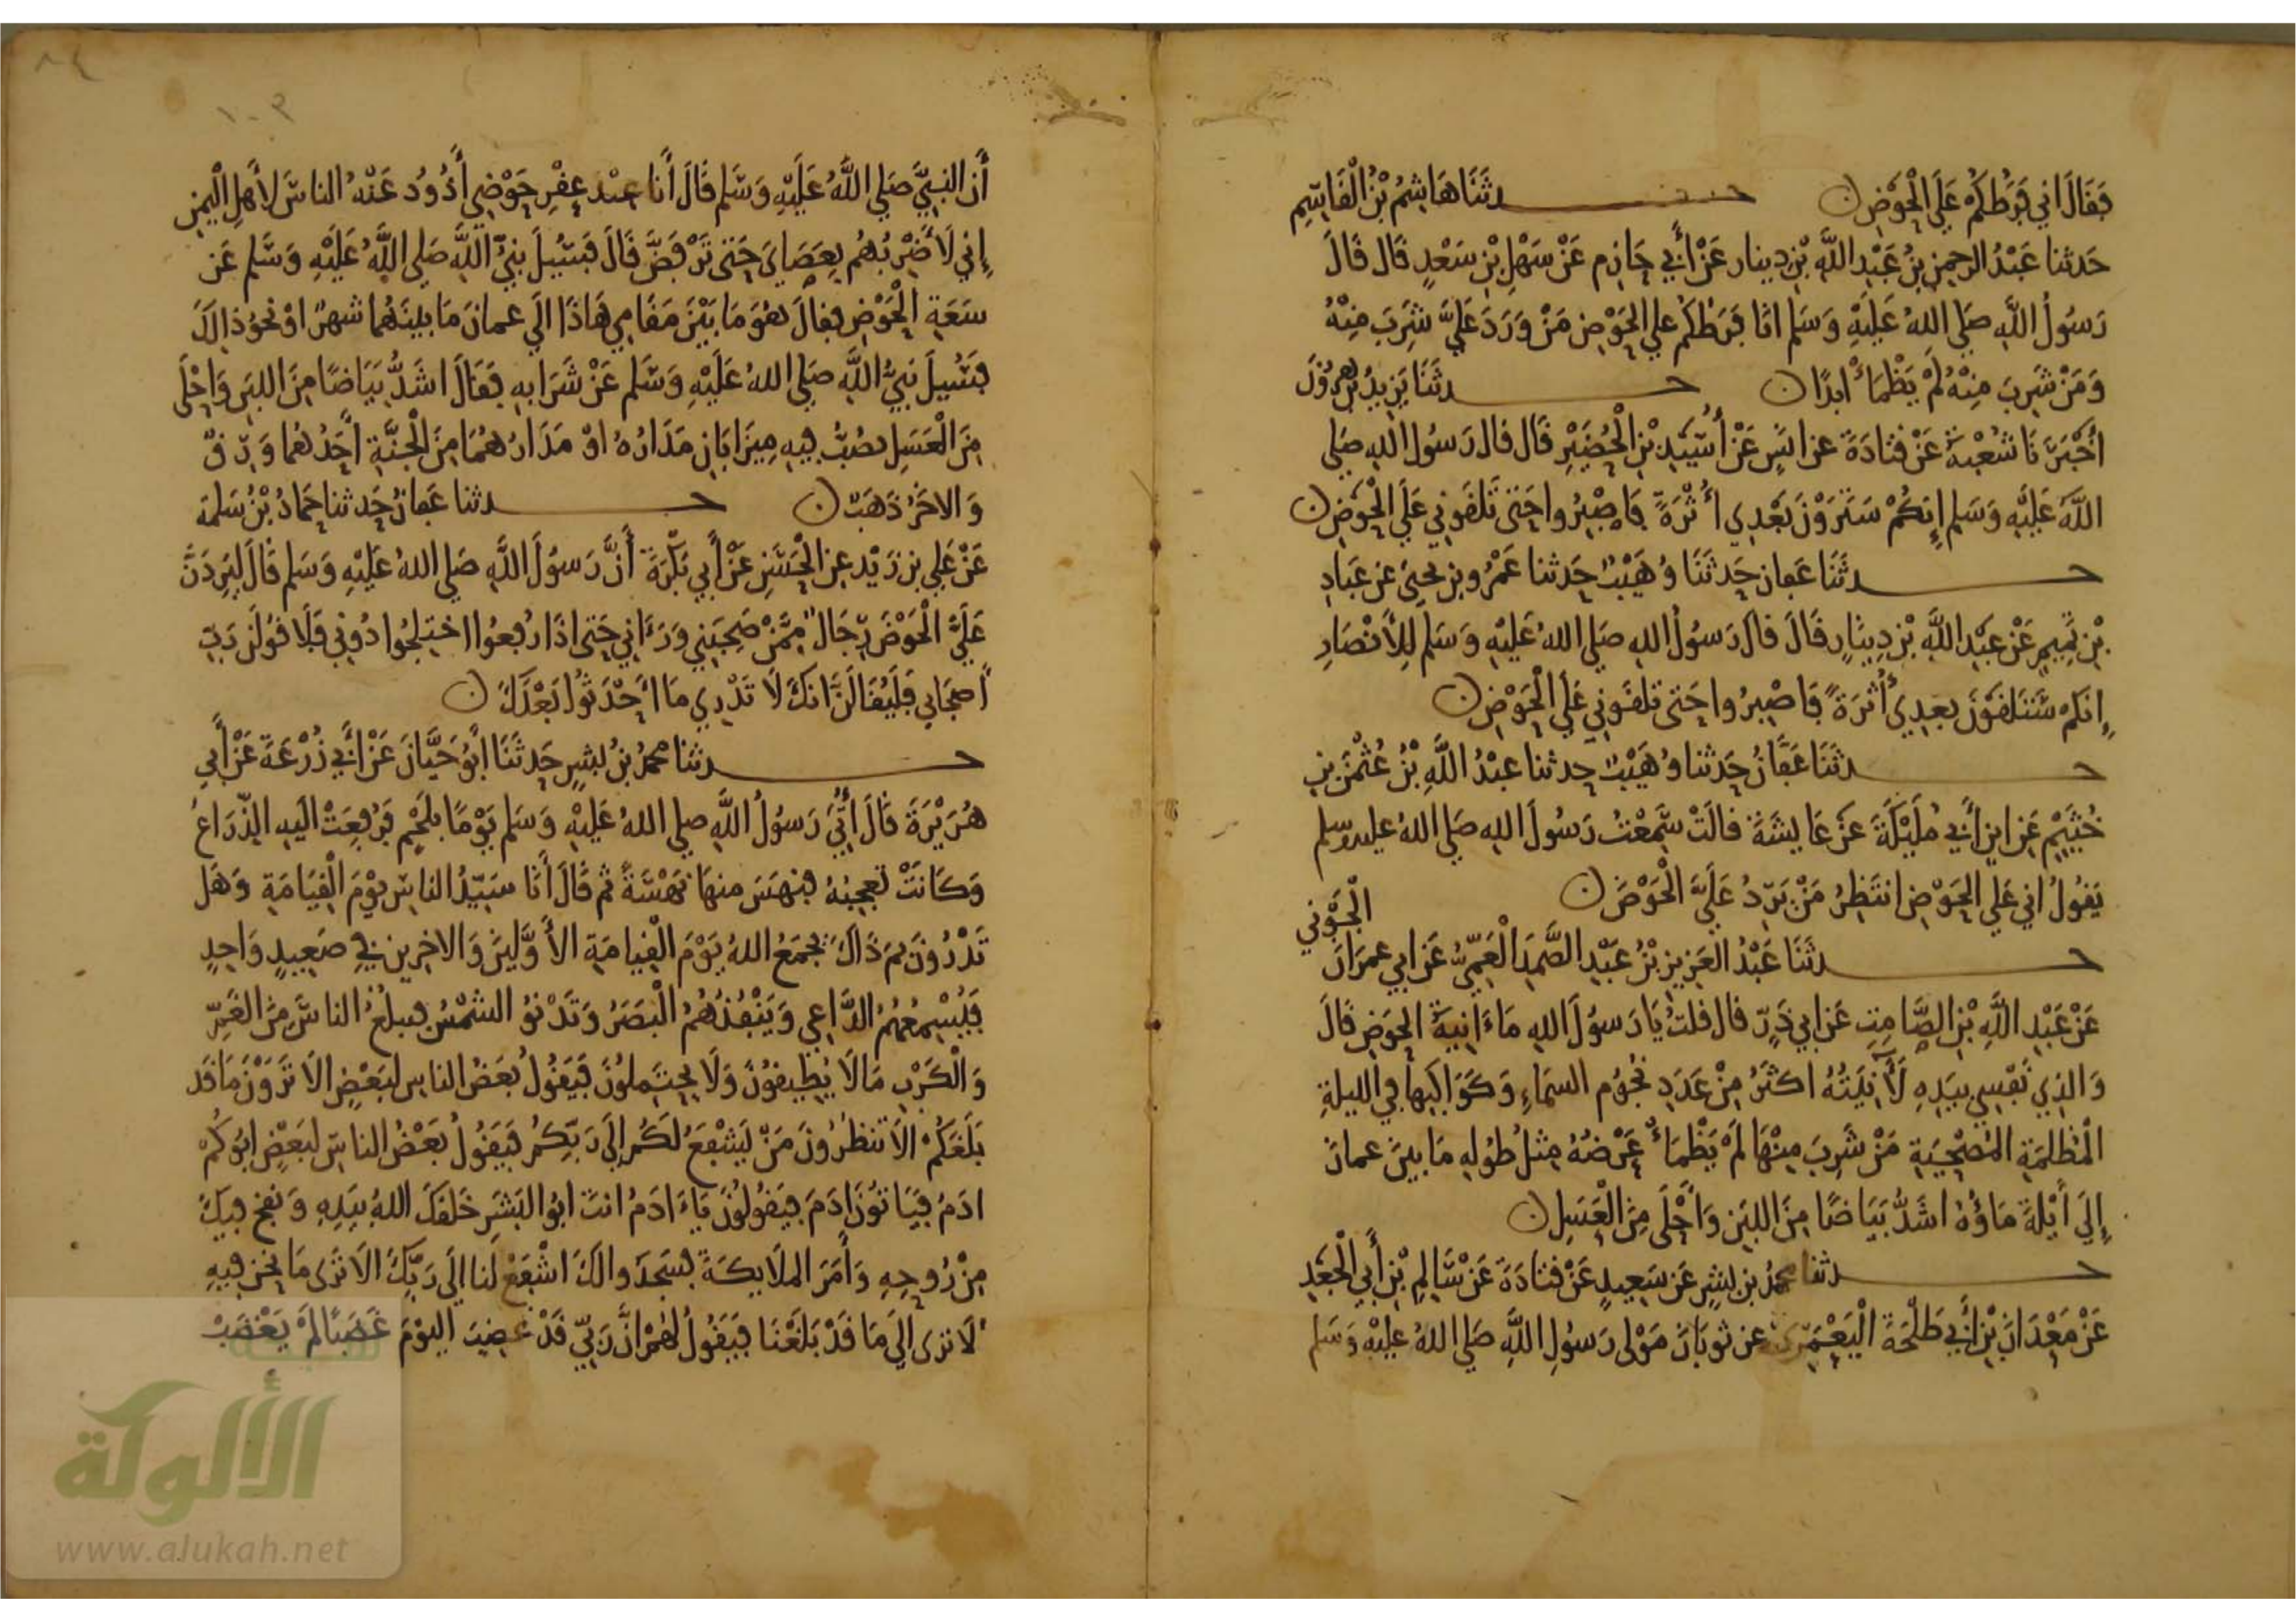 فَقَالَ اني فَرَطُكُمْ عَلَى الْحَوْضِ ن حـدثَنَا هَاشِمُ بْنُ الْقَاسِمِ
حَدثنا عَبْدُ الرحمنِ بنُ عَبْدِ اللَّهِ بْنِ دِينار عَنْ أَبي حَازِم عَنْ سَهْلِ بْنِ سَعْدٍ قَال قَالَ
رَسُولُ اللَّهِ صَلي اللهُ عَلَيْهِ وَسَلم انَا فَرَطُكُم علي الحَوْضِ مَنْ وَرَدَ عَلَيَّ شَرِبَ مِنْهُ
وَمَنْ شَرِبَ مِنْهُ لَمْ يَظْمَأْ ابدًا ن حـدثَنَا يَزِيدُ بْنُ هَرُونَ
أخْبَرَنَا شُعْبَةُ عَنْ قتَادَةَ عن انَسٍ عَنْ أُسَيْدِ بْنِ الْحُضَيْرِ قَال قال رَسُولُ اللهِ صَلي
اللَّهُ عَلَيْهِ وَسَلم إِنكُمْ سَتَرَوْنَ بَعْدِي أُثْرَةً فَاصْبِرُوا حَتى تَلقَوني عَلَي الْحَوْضِ ن
حـدثَنَا عَفان حَدثَنَا وُهَيْبٌ حَدثنا عَمْرُو بن يحيىَ عن عَبادِ
بْنِ تَمِيمٍ عَنْ عَبْدِ اللَّهِ بْنِ دِينَارٍ قَالَ قال رَسُولُ اللهِ صَلي اللهُ عَلَيْهِ وَسَلم لِلأَنْصَارِ
إِنكم سَتَلقَوْنَ بَعدِي أُثرَةً فَاصْبِرُوا حَتى تلقَوني عَلَي الْحَوْضِ ن
حـدثَنَا عَفَّانُ حَدثنا وُهَيْبٌ حدثنا عبْدُ اللَّهِ بْنُ عُثْمَنَ بنِ
خُثَيْمٍ عَنِ ابنِ أَبي مُلَيْكَةَ عَنْ عَايشَةَ قالَتْ سَمعْتُ رَسُولَ اللهِ صَلي اللهُ عليه وسلم
يَقولُ اني عَلي الحَوْضِ انتظِرُ مَنْ يَرِدُ عَلَيَّ الْحَوْضَ ن
الْجَوْني
حـدثَنَا عَبْدُ العَزِيزِ بْنُ عَبْدِ الصَّمَدِ الْعَمِّيُّ عَن ابي عمرَانَ
عَنْ عَبْدِ اللَّهِ بْنِ الصَّامِتِ عَن ابي ذَرٍّ قال قلتُ يَا رَسولَ اللهِ مَاءَانِيَةُ الحَوضِ قَالَ
وَالذِي نَفْسِي بيَدِهِ لَآنِيَتُهُ اكثَرُ مِنْ عَدَدِ نُجُوم السمَاءِ وَكَوَاكِبهَا في الليلةِ
الْمُظلمَةِ المُصْحِيَةِ مَنْ شَرِبَ مِنْهَا لَمْ يَظْمَأْ عَرْضُهُ مِثلُ طُولِهِ مَا بينَ عمانَ
إِلَي أَيْلَةَ مَاؤُهُ اشَدُّ بَيَاضًا مِنَ اللبَنِ وَأَحْلَى مِنَ الْعَسَلِ ن
حـدثنا محمدُ بن بشرٍ عَن سَعِيدٍ عَنْ قتَادَةَ عَنْ سَالِمِ بْنِ أَبي الْجَعْدِ
عَنْ مَعْدَانَ بْنِ أَبي طَلْحَةَ الْيَعْمَرِيِّ عن ثوبَانَ مَوْلى رَسُولِ اللَّهِ صَلي اللهُ عليْهِ وَسَلم
٨٤
١٠٣
أَن النبِيَّ صَلي اللَّهُ عَلَيْهِ وَسَلم قَالَ أَنا عِنْد عقْرِ حَوْضِي أَذُودُ عَنْهُ الناسَ لأَهلِ الْيمنِ
إِني لَأَضْرِبُهُم بِعَصَايَ حَتى تَرْفَضَّ قَالَ فَسُيلَ نبيُّ اللَّهِ صَلي اللَّهُ عَلَيْهِ وَسَلم عَن
سَعَةِ الْحَوْضِ فقالَ هُوَ مَا بَيْنَ مَقَامِي هَاذَا الَي عمانَ مَا بينَهُمَا شهرٌ اوْ نحوُ ذالِكَ
فسُيلَ نَبِيُّ اللَّهِ صَلي اللهُ عَلَيْهِ وَسَلم عَنْ شَرَابهِ فَقَالَ اشَدُّ بَيَاضًا مِنَ اللبَنِ وَاحْلَى
مِنَ الْعَسَلِ يصُبُّ فِيهِ مِيزَابَانِ مَدَادُهُ اوْ مَدَادُهُمَا مِنَ الْجَنَّةِ أَحَدُهُما وَرِقٌ
وَالاخَرُ ذَهَبٌ ن حـدثنا عَفانُ حَدثنا حَمادُ بْنُ سَلمة
عَنْ عَلي بن زَيْد عن الْحَسَنِ عَنْ أَبي بَكْرَةَ أَنَّ رَسُولَ اللَّهِ صَلي اللهُ عَلَيْهِ وَسَلم قَالَ لَيَرِدَنَّ
عَلَيَّ الْحَوْضَ رِجَالٌ مِمَّنْ صَحِبَنِي وَرَءَاني حَتى اذَا رُفعُوا اختلِجُوا دُوني فَلَأَقولَنَّ رَبِّ
أَصحَابي فَلَيُقَالَنَّ انكَ لَا تَدْرِي مَا أَحْدَثُوا بَعْدَكَ ن
حـدثنا محمدُ بنُ بشرٍ حَدثَنَا ابُو حَيَّانَ عَنْ أَبي زُرْعَةَ عَنْ أَبي
هُرَيْرَةَ قَالَ أُتِيَ رَسُولُ اللَّهِ صلي اللهُ عَلَيْهِ وَسَلم يَوْمًا بلَحْمٍ فَرُفِعَتْ الَيهِ الذِّرَاعُ
وَكَانَتْ تعجِبهُ فنهَسَ منهَا نَهْسَةً ثم قَالَ أَنَا سَيّدُ الناسِ يوْمَ الْقيَامَةِ وَهَل
تَدْرُونَ بمَ ذَاكَ يجمَعُ اللهُ يَوْمَ الْقِيامَةِ الأَوَّلِينَ وَالاخِرِين في صَعِيدٍ وَاحِدٍ
فَيُسْمِعُهُمُ الدَّاعِي وَيَنْفُذُهُمُ الْبَصَرُ وَتَدْنُو الشمْسُ فيبلغُ الناسَ مِنَ الغَمِّ
وَالْكَرْبِ مَالَا يُطِيقُونَ وَلَا يحتَملونَ فَيَقُولُ بَعَضُ الناسِ لبَعْضٍ الَا تَرَوْنَ مَا قَد
بَلَغَكُمْ الَا تَنظرُونَ مَنْ يَشْفَعُ لَكُم إِلَى رَبِّكُم فَيَقُولُ بَعْضُ الناسِ لبَعْضٍ ابُوكُمْ
ادَمُ فَيَاتُونَ ادَمَ فيَقُولُونَ يَاءَادَمُ انتَ ابُو البَشَرِ خَلَقَكَ اللهُ بيَدِهِ وَنَفخ فِيكَ
مِنْ رُوحِهِ وَأَمَرَ الملَايكَةَ فسَجَدُوا لَكَ اشْفَعْ لَنا الَي رَبِّكَ الَا تَرَى مَا نحن فِيهِ
الَا ترى الَي مَا قَدْ بَلَغْنَا فَيَقُولُ لهُمْ انَّ رَبِّي قَدْ غَضِبَ اليوْمَ غَضَبًا لَمْ يَغْضَبْ
الألوكة
www.alukah.net